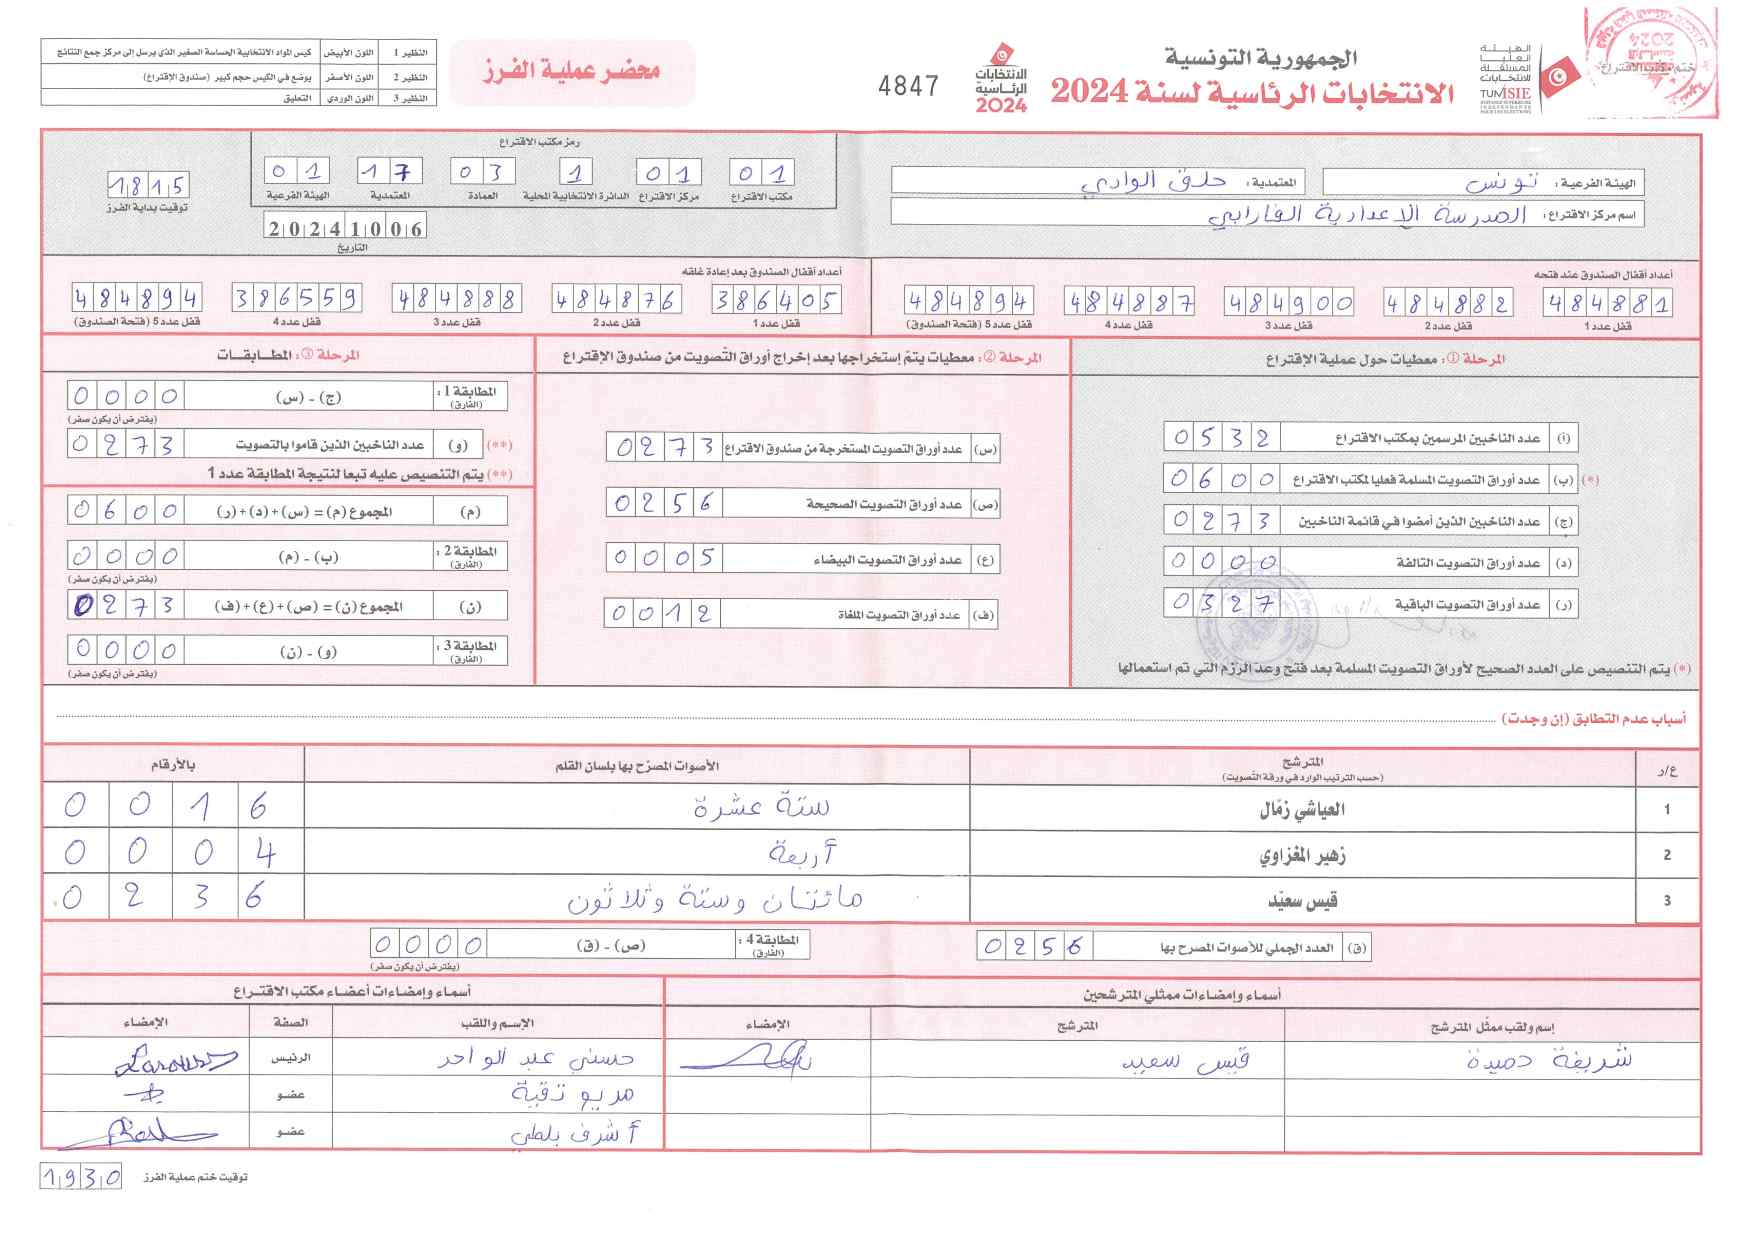 النظير 1 اللون الأبيض كيس المواد الانتخابية الحساسة الصغير الذي يرسل إلى مركز جمع النتائج
النظير 2 اللون الأصفر يوضع في الكيس حجم كبير (صندوق الإقتراع)
النظير 3 اللون الوردي التعليق
محضر عملية الفرز
4847
الانتخابات الرئاسية 2024
الجمهورية التونسية
الانتخابات الرئاسية لسنة 2024
الهيئة العليا المستقلة للانتخابات
TUNISIE
ختم مكتب الاقتراع
الهيئة الفرعية: تونس
المعتمدية: حلق الوادي
اسم مركز الاقتراع: المدرسة الإعدادية الفارابي
رمز مكتب الاقتراع
01 مكتب الاقتراع
01 مركز الاقتراع
1 الدائرة الانتخابية المحلية
03 العمادة
17 المعتمدية
01 الهيئة الفرعية
20241006
التاريخ
1815
توقيت بداية الفرز
أعداد أقفال الصندوق عند فتحه
484881 قفل عدد 1
484882 قفل عدد 2
484900 قفل عدد 3
484887 قفل عدد 4
484894 قفل عدد 5 (فتحة الصندوق)
أعداد أقفال الصندوق بعد إعادة غلقه
386405 قفل عدد 1
484876 قفل عدد 2
484888 قفل عدد 3
386559 قفل عدد 4
484894 قفل عدد 5 (فتحة الصندوق)
المرحلة ①: معطيات حول عملية الإقتراع
(أ) عدد الناخبين المرسمين بمكتب الاقتراع 0532
(*) (ب) عدد أوراق التصويت المسلمة فعليا لمكتب الاقتراع 0600
(ج) عدد الناخبين الذين أمضوا في قائمة الناخبين 0273
(د) عدد أوراق التصويت التالفة 0000
(ر) عدد أوراق التصويت الباقية 0327
(*) يتم التنصيص على العدد الصحيح لأوراق التصويت المسلمة بعد فتح وعد الرزم التي تم استعمالها
المرحلة ②: معطيات يتم إستخراجها بعد إخراج أوراق التصويت من صندوق الإقتراع
(س) عدد أوراق التصويت المستخرجة من صندوق الاقتراع 0273
(ص) عدد أوراق التصويت الصحيحة 0256
(ع) عدد أوراق التصويت البيضاء 0005
(ف) عدد أوراق التصويت الملغاة 0012
المرحلة ③: المطابقات
المطابقة 1: (الفارق) (ج) - (س) 0000
(يفترض أن يكون صفر)
(**) (و) عدد الناخبين الذين قاموا بالتصويت 0273
(**) يتم التنصيص عليه تبعا لنتيجة المطابقة عدد 1
(م) المجموع (م) = (س) + (د) + (ر) 0600
المطابقة 2: (الفارق) (ب) - (م) 0000
(يفترض أن يكون صفر)
(ن) المجموع (ن) = (ص) + (ع) + (ف) 0273
المطابقة 3: (الفارق) (و) - (ن) 0000
(يفترض أن يكون صفر)
أسباب عدم التطابق (إن وجدت)
ع/ر المترشح الأصوات المصرّح بها بلسان القلم بالأرقام
(حسب الترتيب الوارد في ورقة التصويت)
1 العياشي زمّال ستة عشرة 0016
2 زهير المغزاوي أربعة 0004
3 قيس سعيّد مائتان وستة وثلاثون 0236
(ق) العدد الجملي للأصوات المصرح بها 0256
المطابقة 4: (الفارق) (ص) - (ق) 0000
(يفترض أن يكون صفر)
أسماء وإمضاءات ممثلي المترشحين
إسم ولقب ممثّل المترشح المترشح الإمضاء
شريفة حميدة قيس سعيد
أسماء وإمضاءات أعضاء مكتب الاقتراع
الإسم واللقب الصفة الإمضاء
حسني عبد الواحد الرئيس
مريم تقية عضو
أشرف بلطي عضو
توقيت ختم عملية الفرز 1930